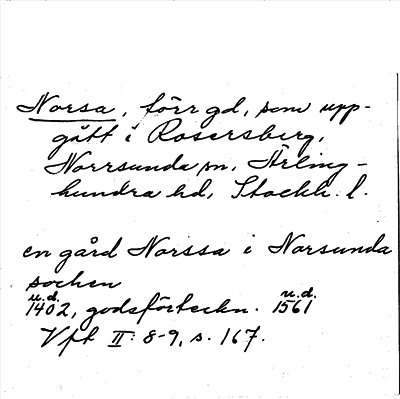 Norsa, förr gd, som upp-
gått i Rosersberg,
Norrsunda sn, Ärling-
hundra hd, Stockh. l.
en gård Norssa i Norsunda
sochen
u.d. u.d.
1402, godsförteckn. 1561
Vfk II: 8-9, s. 167.